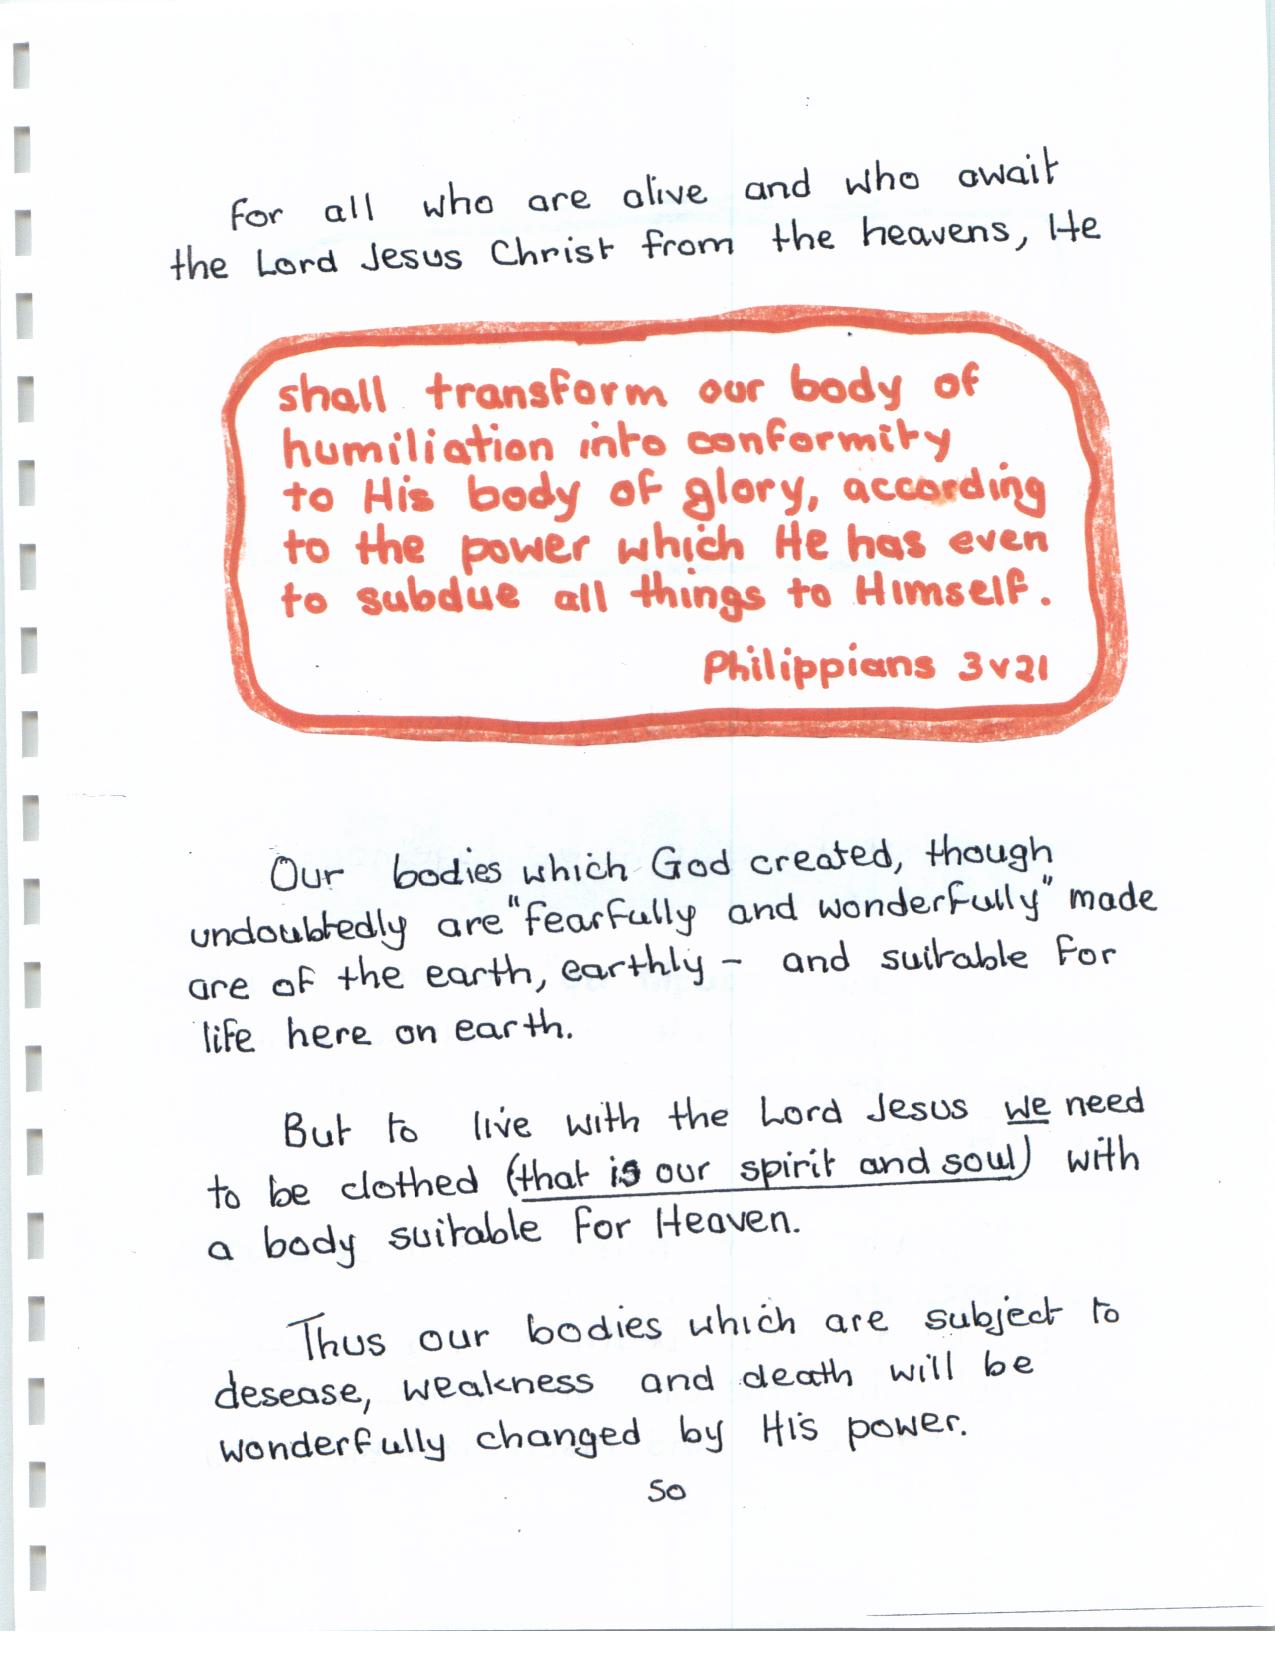 For all who are alive and who await
the Lord Jesus Christ from the heavens, He
shall transform our body of
humiliation into conformity
to His body of glory, according
to the power which He has even
to subdue all things to Himself.
Philippians 3 v 21
Our bodies which God created, though
undoubtedly are "fearfully and wonderfully" made
are of the earth, earthly - and suitable for
life here on earth.
But to live with the Lord Jesus we need
to be clothed (that is our spirit and soul) with
a body suitable for Heaven.
Thus our bodies which are subject to
desease, weakness and death will be
wonderfully changed by His power.
50